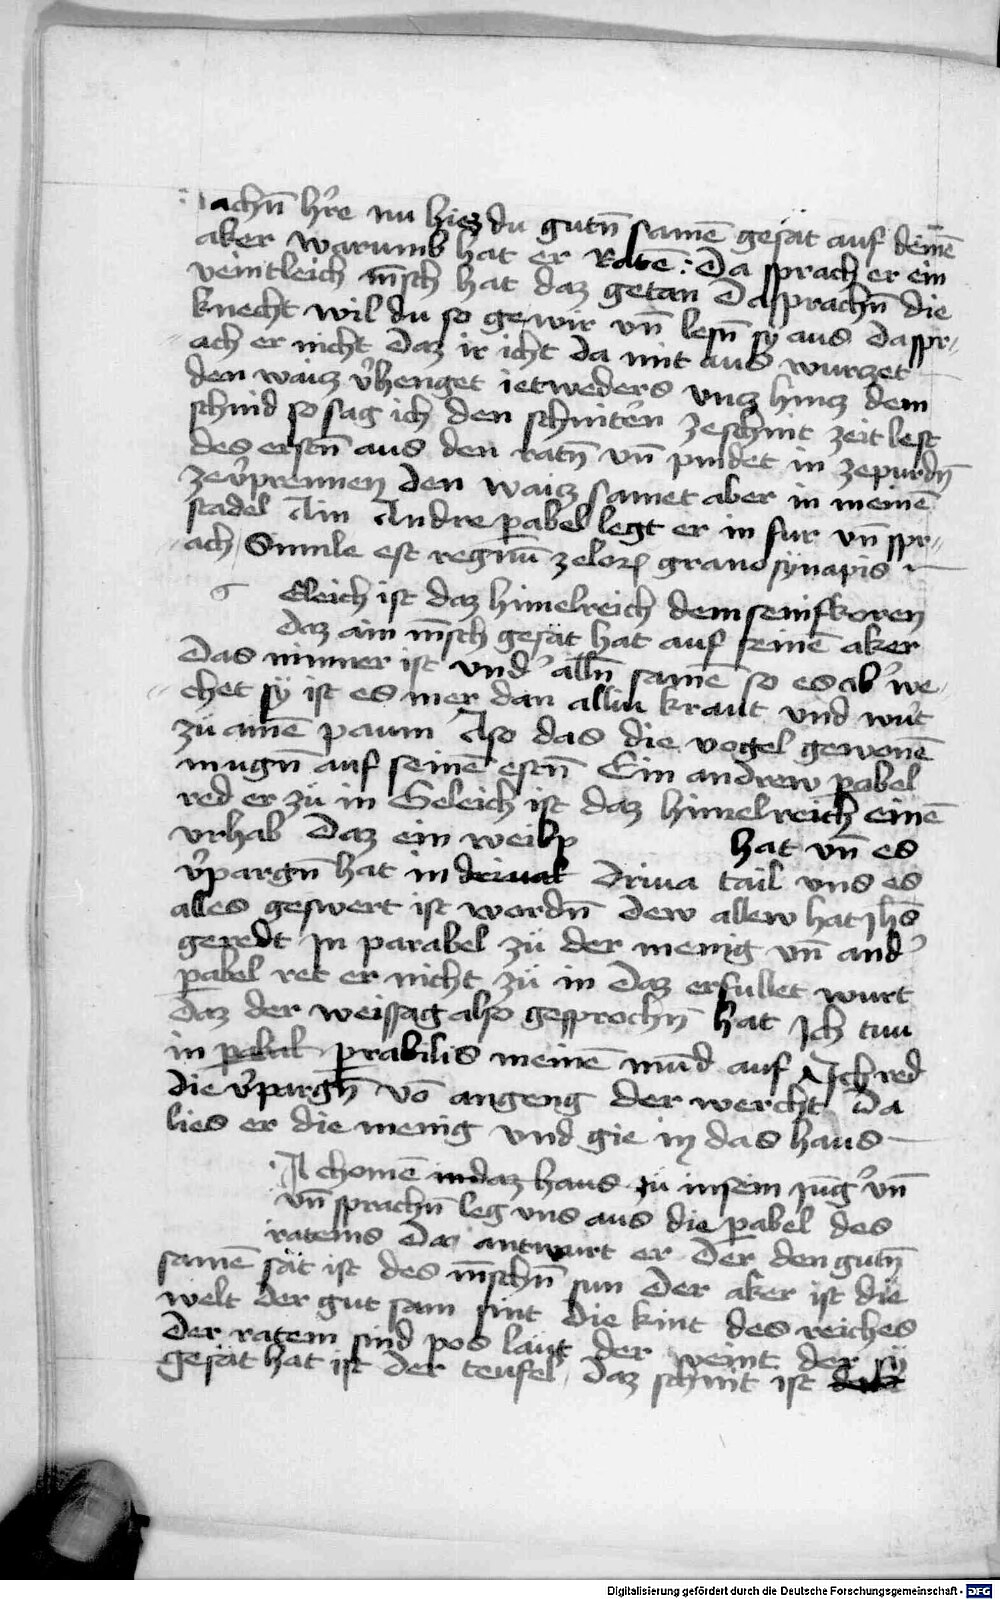 achn̄ hr̄e nu hiez du gutn̄ samē gesät auf deinē
aker warumb hat er Ratē : Da sprach er ein
veintleich mēsch hat daz getan Da sprachn̄ die
knecht wil du so ge wir vn̄ lesn̄ sy aus Da spr〃
ach er nicht Daz ir icht da mit aus wurczet
den waicz v̓henget ietweders vncz hincz dem
schnid so sag ich den schnitērn ze schnit zeit lest
des erstn̄ aus den ratn̄ vn̄ pindet in ze purdn̄
ze v̓prennen Den waicz samet aber in meinē
stadel Ain Andre pabel legt er in fur vn̄ spr〃
ach Simile est regnū zelorꝫ grano synapis
Gleich ist daz himelreich dem senifkoren
Daz ain mēsch gesät hat auf seinē aker
Das minner ist vnd̓ alln̄ samē so es ab̓ we〃
chet sy ist es mer dan alliu kraut vnd wirt
zü ainē paum Aso das die vogel gewonē
mugn̄ auf seinē estn̄ Ein andrew pabel
red er zü in Geleich ist daz himelreich einē
vrhab Daz ein weibp hat vn̄ es
v̓pargn̄ hat in driual Driua tail vns es
alles geswert ist wordn̄ Dew allew hat Jhs̄
geredt In parabel zü der menig vn̄ and̓
pabel ret er nicht zü in Daz erfullet wurt
Daz der weissag also gesprochn̄ hat Ich tuu
in pabal prabilis meinē mūd auf Ich red
die v̓pargn̄ vō angeng der wercht Da
lies er die menig vnd gie in das haus
chomē in daz haus zü in sein jūg̓ vn̄
vn̄ sprachn̄ leg vns aus die pabel des
ratems Da antwurt er Der den gutn̄
samē sät ist des mēschn̄ sun Der aker ist die
welt Der gut sam sint die kint des reiches
Der ratem sind pos läut der veint der sy
gesät hat ist der teufel Daz schnit ist
Digitalisierung gefördert durch die Deutsche Forschungsgemeinschaft - DFG